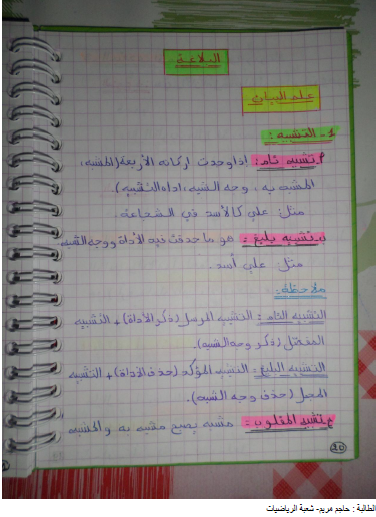 البلاغة
علم البيان
1- التشبيه:
أ- تشبيه تام: إذا وجدت أركانه الأربعة (المشبه،
المشبه به، وجه الشبه، أداة التشبيه).
مثل: علي كالأسد في الشجاعة.
ب- تشبيه بليغ: هو ما حذفت فيه الأداة ووجه الشبه
مثل: علي أسد.
ملاحظة:
التشبيه التام: التشبيه المرسل (ذكر الأداة) + التشبيه
المفصل (ذكر وجه الشبه).
التشبيه البليغ: التشبيه المؤكد (حذف الأداة) + التشبيه
المجمل (حذف وجه الشبه).
ج- تشبيه المقلوب: مشبه يصبح مشبه به والمشبه
الطالبة : حاجم مريم- شعبة الرياضيات